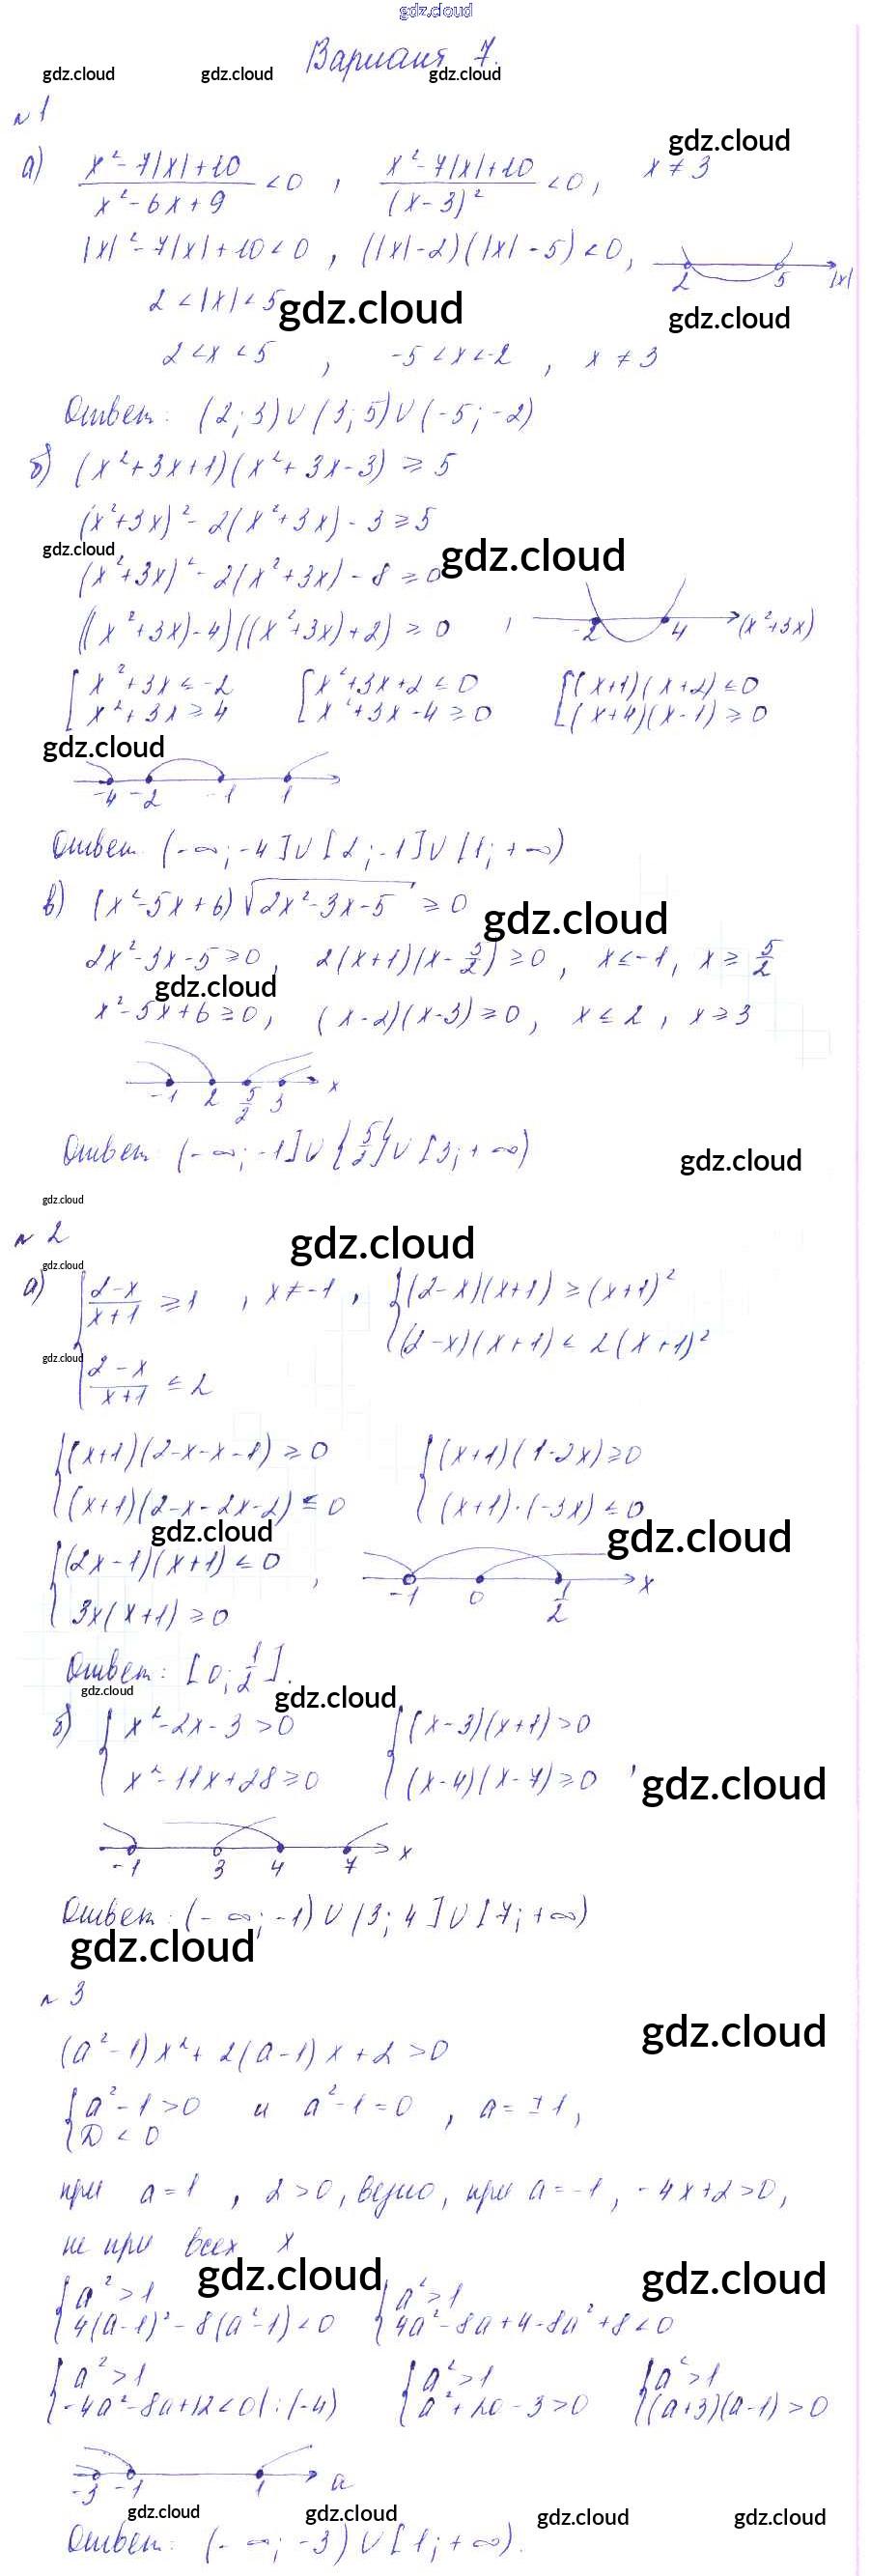 gdz.cloud
Вариант 7.
gdz.cloud gdz.cloud gdz.cloud
№1
gdz.cloud
а) (x²-7|x|+10)/(x²-6x+9) <0 , (x²-7|x|+10)/(x-3)² <0, x≠3
|x|²-7|x|+10<0 , (|x|-2)(|x|-5)<0, 2 5 |x|
2<|x|<5 gdz.cloud gdz.cloud
2<x<5 , -5<x<-2 , x≠3
Ответ: (2;3)∪(3;5)∪(-5;-2)
б) (x²+3x+1)(x²+3x-3) ≥ 5
(x²+3x)²-2(x²+3x)-3≥5
gdz.cloud gdz.cloud
(x²+3x)²-2(x²+3x)-8≥0
((x²+3x)-4)((x²+3x)+2)≥0 , -2 4 (x²+3x)
[x²+3x≤-2 [x²+3x+2≤0 [(x+1)(x+2)≤0
x²+3x≥4 x²+3x-4≥0 (x+4)(x-1)≥0
gdz.cloud
-4 -2 -1 1
Ответ (-∞;-4]∪[2;-1]∪[1;+∞)
в) (x²-5x+6)√(2x²-3x-5) ≥0 gdz.cloud
2x²-3x-5≥0, 2(x+1)(x-5/2)≥0, x≤-1, x≥5/2
gdz.cloud
x²-5x+6≥0, (x-2)(x-3)≥0, x≤2, x≥3
-1 2 5/2 3 x
Ответ: (-∞;-1]∪{5/2}∪[3;+∞)
gdz.cloud
gdz.cloud
№2 gdz.cloud
gdz.cloud
а) {(2-x)/(x+1) ≥1 , x≠-1 , {(2-x)(x+1)≥(x+1)²
(2-x)(x+1)≤2(x+1)²
gdz.cloud
(2-x)/(x+1) ≤2
{(x+1)(2-x-x-1)≥0 {(x+1)(1-2x)≥0
(x+1)(2-x-2x-2)≤0 (x+1)·(-3x)≤0
gdz.cloud gdz.cloud
{(2x-1)(x+1)≤0 , -1 0 1/2 x
3x(x+1)≥0
Ответ: [0;1/2].
gdz.cloud gdz.cloud
б) {x²-2x-3>0 {(x-3)(x+1)>0
x²-11x+28≥0 (x-4)(x-7)≥0 , gdz.cloud
-1 3 4 7 x
Ответ: (-∞;-1)∪(3;4]∪[7;+∞)
gdz.cloud
№3
gdz.cloud
(a²-1)x²+2(a-1)x+2>0
{a²-1>0 и a²-1=0 , a=±1,
D<0
при a=1 , 2>0, верно, при a=-1, -4x+2>0,
не при всех x
gdz.cloud gdz.cloud
{a²>1 {a²>1
4(a-1)²-8(a²-1)<0 4a²-8a+4-8a²+8<0
{a²>1 {a²>1 {a²>1
-4a²-8a+12<0|:(-4) a²+2a-3>0 (a+3)(a-1)>0
-3 -1 1 a
gdz.cloud gdz.cloud gdz.cloud gdz.cloud
Ответ: (-∞;-3)∪[1;+∞).